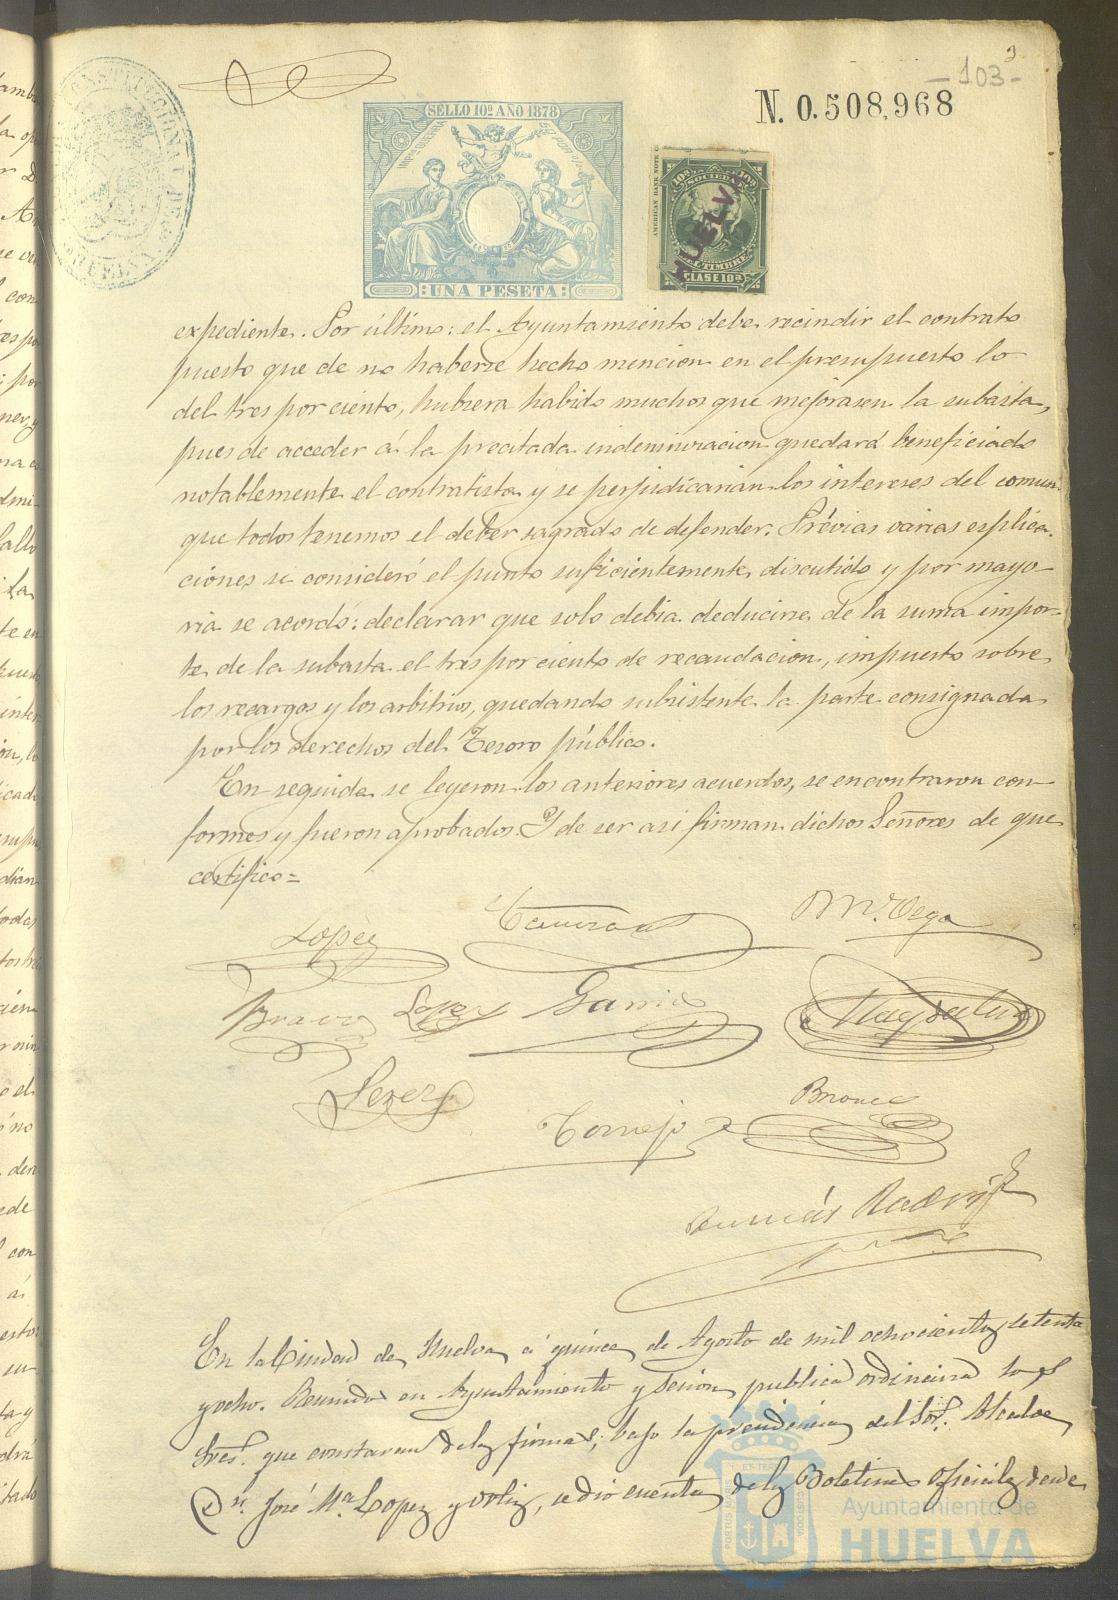 -103-
N. 0.508,968
SELLO 10º AÑO 1878
UNA PESETA
AMERICAN BANK NOTE
10ª SOCIEDAD 10ª
DEL TIMBRE
CLASE 10ª
HUELVA
expediente. Por último: el Ayuntamiento debe recindir el contrato
puesto que de no haberse hecho mencion en el presupuesto lo
del tres por ciento, hubiera habido muchos que mejorasen la subasta,
pues de acceder á la precitada indemnizacion quedará beneficiado
notablemente el contratista y se perjudicarian los intereses del comun
que todos tenemos el deber sagrado de defender. Prévias varias esplica-
ciones se consideró el punto suficientemente discutido y por mayo-
ria se acordó: declarar que solo debia deducirse de la suma impor-
te de la subasta el tres por ciento de recaudacion, impuesto sobre
los recargos y los arbitrios, quedando subsistente la parte consignada
por los derechos del Tesoro público.
En seguida se leyeron los anteriores acuerdos, se encontraron con-
formes y fueron aprobados. Y de ser asi firman dichos Señores de que
certifico=
Lopez
Mº. Vega
Bravo Lopez Garrido
Perez
Tornejo
En la Ciudad de Huelva á quince de Agosto de mil ochocientos setenta
y ocho. Reunidos en Ayuntamiento y sesion publica ordinaria los
Sres. que constaran de las firmas, bajo la presidencia del Sor. Alcalde
Dn. José Mª Lopez y , se dió cuenta de los Boletines oficiales desde
Ayuntamiento de
HUELVA